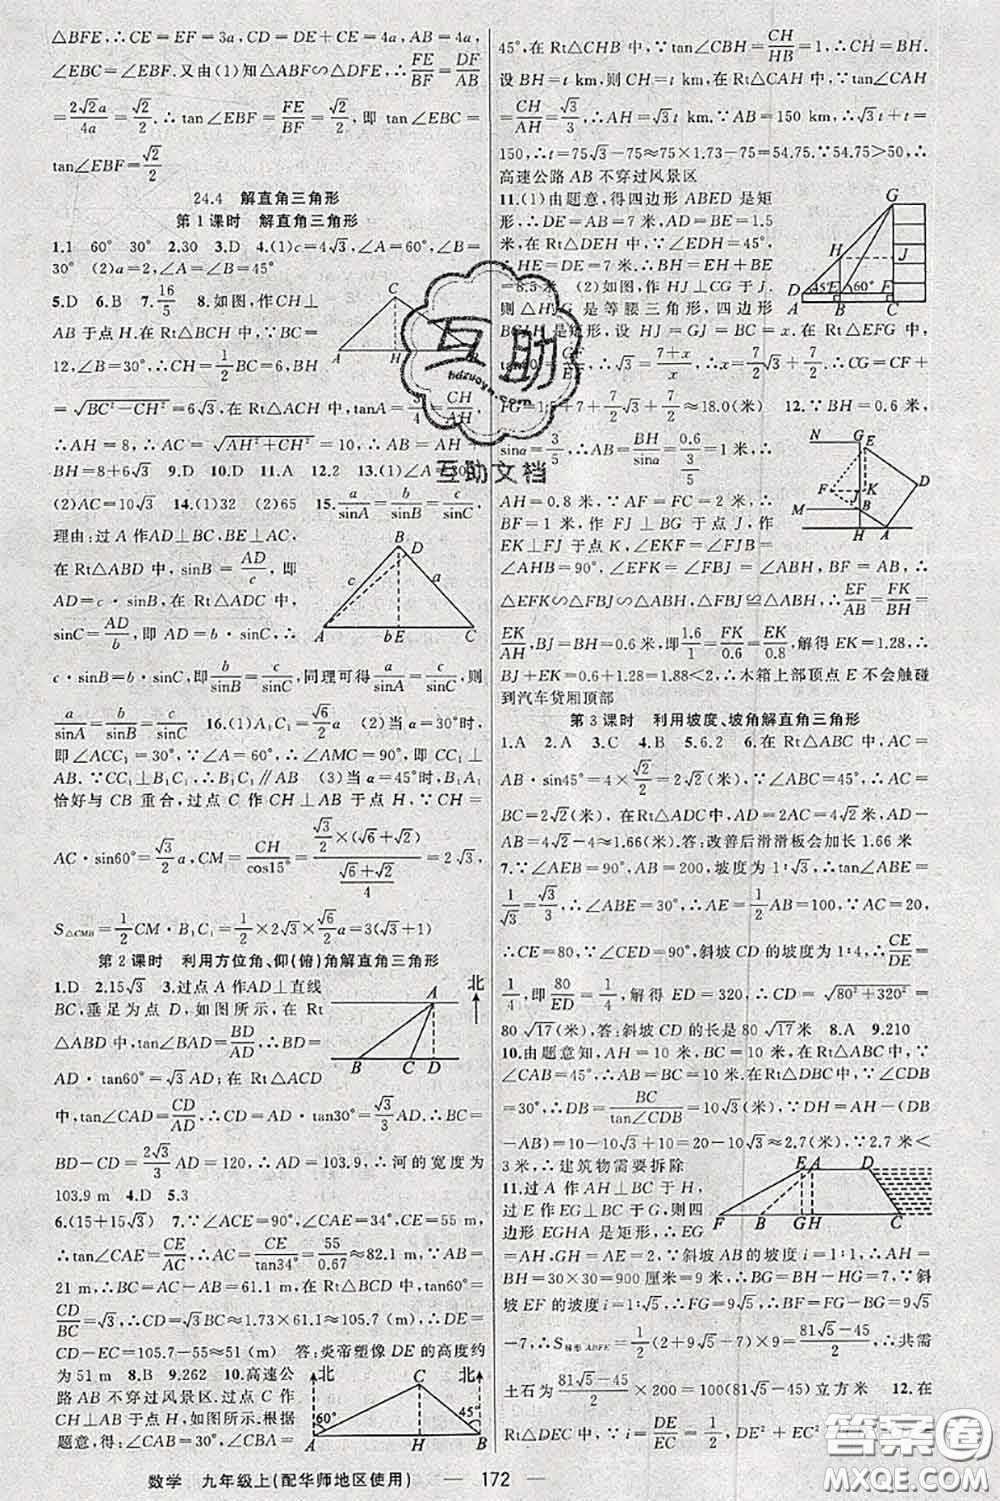 △BFE,∴CE=EF=3a,CD=DE+CE=4a,AB=4a,
∠EBC=∠EBF.又由(1)知△ABF∽△DFE,∴FE/BF=DF/AB
=2√2a/4a=√2/2.∴tan∠EBF=FE/BF=√2/2,即 tan∠EBC=
tan∠EBF=√2/2
24.4 解直角三角形
第1课时 解直角三角形
1.1 60° 30° 2.30 3.D 4.(1)c=4√3,∠A=60°,∠B=
30° (2)a=2,∠A=∠B=45°
5.D 6.B 7.16/5 8.如图,作CH⊥
AB于点H.在Rt△BCH中,∵BC=
12,∠B=30°,∴CH=1/2BC=6,BH
=√(BC²-CH²)=6√3.在Rt△ACH中,tanA=3/4=CH/AH,
∴AH=8,∴AC=√(AH²+CH²)=10.∴AB=AH+
BH=8+6√3 9.D 10.D 11.A 12.2 13.(1)∠A=30°
(2)AC=10√3 14.(1)32 (2)65 15.a/sinA=b/sinB,
理由:过A作AD⊥BC,BE⊥AC,
在Rt△ABD中,sinB=AD/c,即
AD=c·sinB,在Rt△ADC中,
sinC=AD/b,即AD=b·sinC,∴
c·sinB=b·sinC,即b/sinB=c/sinC,同理可得a/sinA=c/sinC,则
a/sinA=b/sinB 16.(1)A₁C₁=√6/2a (2)当α=30°时,
即∠ACC₁=30°,∵∠A=60°,∴∠AMC=90°,即CC₁⊥
AB.∵CC₁⊥B₁C₁,∴B₁C₁∥AB (3)当α=45°时,B₁A₁
恰好与CB重合,过点C作CH⊥AB于点H,∵CH=
AC·sin60°=√3/2a,CM=CH/cos15°=(√3/2×(√6+√2))/((√6+√2)/4)=2√3,
S△CMB₁=1/2CM·B₁C₁=1/2×2√3×√6/2a=3(√3+1)
第2课时 利用方位角、仰(俯)角解直角三角形
1.D 2.15√3 3.过点A作AD⊥直线
BC,垂足为点D,如图所示,在Rt
△ABD中,tan∠BAD=BD/AD,∴BD=
AD·tan60°=√3AD;在Rt△ACD
中,tan∠CAD=CD/AD,∴CD=AD·tan30°=√3/3AD.∴BC=
BD-CD=2√3/3AD=120,∴AD=103.9,∴河的宽度为
103.9 m 4.D 5.3
6.(15+15√3) 7.∵∠ACE=90°,∠CAE=34°,CE=55 m,
∴tan∠CAE=CE/AC,∴AC=CE/tan34°=55/0.67≈82.1 m,∵AB=
21 m,∴BC=AC-AB=61.1 m,在Rt△BCD中,tan60°=
CD/BC=√3,∴CD=√3BC≈1.73×61.1≈105.7(m),∴DE=
CD-EC=105.7-55≈51(m) 答:炎帝塑像DE的高度约
为51 m 8.B 9.262 10.高速公
路AB不穿过风景区.过点C作
CH⊥AB于点H,如图所示.根据
题意,得:∠CAB=30°,∠CBA=
45°,在Rt△CHB中,∵tan∠CBH=CH/HB=1,∴CH=BH.
设BH=t km,则CH=t km,在Rt△CAH中,∵tan∠CAH
=CH/AH=√3/3,∴AH=√3t km.∵AB=150 km,∴√3t+t=
150,∴t=75√3-75≈75×1.73-75=54.75.∵54.75>50,∴
高速公路AB不穿过风景区
11.(1)由题意,得四边形ABED是矩
形,∴DE=AB=7米,AD=BE=1.5
米,在Rt△DEH中,∵∠EDH=45°,
∴HE=DE=7米.∴BH=EH+BE=
8.5米 (2)如图,作HJ⊥CG于J.
则△HJG是等腰三角形,四边形
BCJH是矩形,设HJ=GJ=BC=x.在Rt△EFG中,
tan60°=GF/EF,∴√3=(7+x)/x,∴x=7/2√3+7/2,∴CG=CF+
FG=1.5+7+7/2√3+7/2≈18.0(米) 12.∵BH=0.6米,
sinα=3/5,∴AB=BH/sinα=0.6/(3/5)=1米,∴
AH=0.8米,∵AF=FC=2米,∴
BF=1米,作FJ⊥BG于点J,作
EK⊥FJ于点K,∵∠EKF=∠FJB=
∠AHB=90°,∠EFK=∠FBJ=∠ABH,BF=AB,∴
△EFK∽△FBJ∽△ABH,∴EF/AB=FK/BH=
EK/AH,BJ=BH=0.6米,即1.6/1=FK/0.6=EK/0.8,解得EK=1.28,∴
BJ+EK=0.6+1.28=1.88<2,∴木箱上部顶点E不会触碰
到汽车货厢顶部
第3课时 利用坡度、坡角解直角三角形
1.A 2.A 3.C 4.B 5.6.2 6.在Rt△ABC中,AC=
AB·sin45°=4×√2/2=2√2(米),∵∠ABC=45°,∴AC=
BC=2√2(米),在Rt△ADC中,AD=2AC=4√2,∴AD-
AB=4√2-4≈1.66(米).答:改善后滑滑板会加长1.66米
7.∵∠AEB=90°,AB=200,坡度为1:√3,∴tan∠ABE=
1/√3=√3/3,∴∠ABE=30°,∴AE=1/2AB=100.∵AC=20,
∴CE=80,∵∠CED=90°,斜坡CD的坡度为1:4,∴CE/DE=
1/4,即80/ED=1/4,解得ED=320,∴CD=√(80²+320²)=
80√17(米),答:斜坡CD的长是80√17米 8.A 9.210
10.由题意知,AH=10米,BC=10米,在Rt△ABC中,∵
∠CAB=45°,∴AB=BC=10米.在Rt△DBC中,∵∠CDB
=30°,∴DB=BC/tan∠CDB=10√3(米),∵DH=AH-(DB
-AB)=10-10√3+10=20-10√3≈2.7(米),∵2.7米<
3米,∴建筑物需要拆除
11.过A作AH⊥BC于H,
过E作EG⊥BC于G,则四
边形EGHA是矩形,∴EG
=AH,GH=AE=2,∵斜坡AB的坡度i=1:1,∴AH=
BH=30×30=900厘米=9米,∴BG=BH-HG=7,∵斜
坡EF的坡度i=1:√5,∴FG=9√5,∴BF=FG-BG=9√5
-7,∴S梯形ABFE=1/2(2+9√5-7)×9=(81√5-45)/2,∴共需
土石为(81√5-45)/2×200=100(81√5-45)立方米 12.在
Rt△DEC中,∵i=DE/EC=1/2,DE²+EC²=
数学 九年级上(配华师地区使用) — 172 —
C
A
H
B
D
c
a
A
b
E
C
北
A
B
C
D
北
北
C
60°
45°
A
H
B
G
H
J
D
45°
60°
E
A
B
C
N
G
E
D
F
K
J
M
B
H
A
E
A
D
F
B
G
H
C
互助
hdzuoye.com
互助文档
答案圈
MXQE.COM